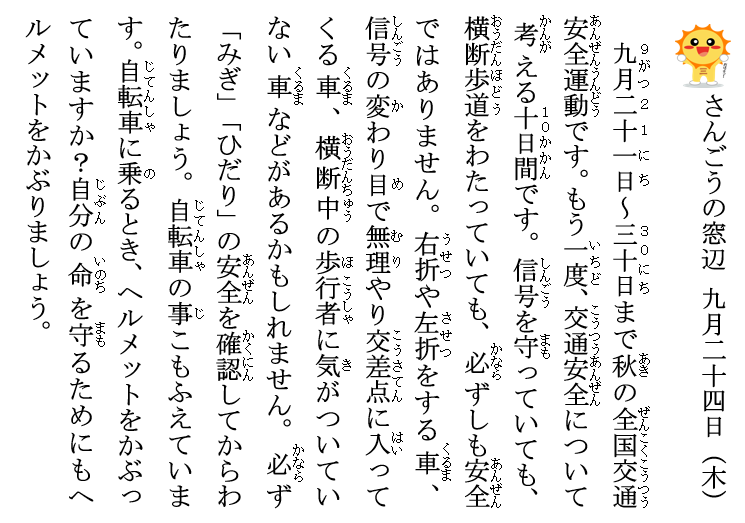 さんごうの窓辺 九月二十四日(木)
九月二十一日～三十日まで秋の全国交通
安全運動です。もう一度、交通安全について
考える十日間です。信号を守っていても、
横断歩道をわたっていても、必ずしも安全
ではありません。右折や左折をする車、
信号の変わり目で無理やり交差点に入って
くる車、横断中の歩行者に気がついてい
ない車などがあるかもしれません。必ず
「みぎ」「ひだり」の安全を確認してからわ
たりましょう。自転車の事こもふえていま
す。自転車に乗るとき、ヘルメットをかぶっ
ていますか?自分の命を守るためにもヘ
ルメットをかぶりましょう。